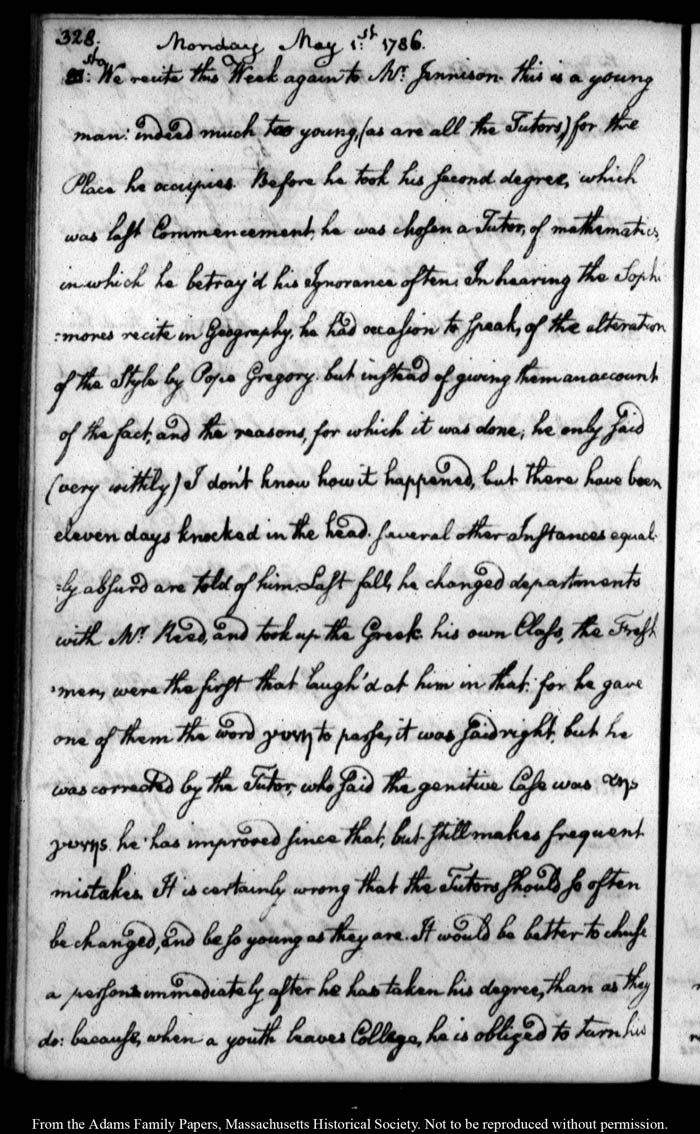 328.
Monday May 1:st 1786.
We recite this Week again to Mr. Jennison. this is a young
man: indeed much too young, (as are all the Tutors,) for the
Place he occupies. Before he took his second degree, which
was last Commencement, he was chosen a Tutor, of mathematics,
in which he betray'd his Ignorance often. In hearing the Soph-
:mores recite in Geography, he had occasion to speak, of the alteration
of the Style by Pope Gregory. but instead of giving them an account
of the fact, and the reasons, for which it was done; he only said
(very wittily) I don't know how it happened, but there have been
eleven days knocked in the head. several other Instances equal-
:ly absurd are told of him. Last fall, he changed departments
with Mr. Reed, and took up the Greek. his own Class, the Fresh-
:men, were the first that laugh'd at him in that: for he gave
one of them the word γυνη to parse, it was said right, but he
was corrected by the Tutor, who said the genitive Case was της
γυνης. he has improved since that, but still makes frequent
mistakes. It is certainly wrong that the Tutors should so often
be changed, and be so young as they are. It would be better to chuse
a person immediately after he has taken his degree, than as they
do: because, when a youth leaves College, he is obliged to turn his
From the Adams Family Papers, Massachusetts Historical Society. Not to be reproduced without permission.